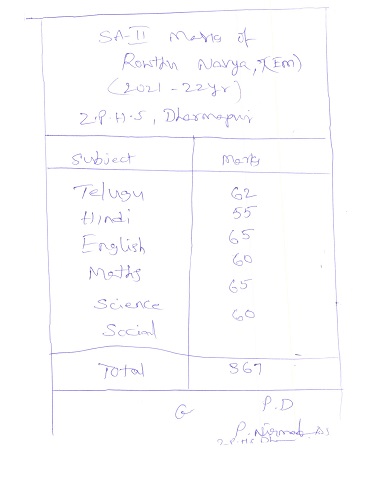 SA-II Marks of
Rowthu Navya, X(Em)
(2021-22yr)
Z.P.H.S, Dharmapuri
Subject Marks
Telugu 62
Hindi 55
English 65
Maths 60
Science 65
Social 60
Total 367
G P.D
P.